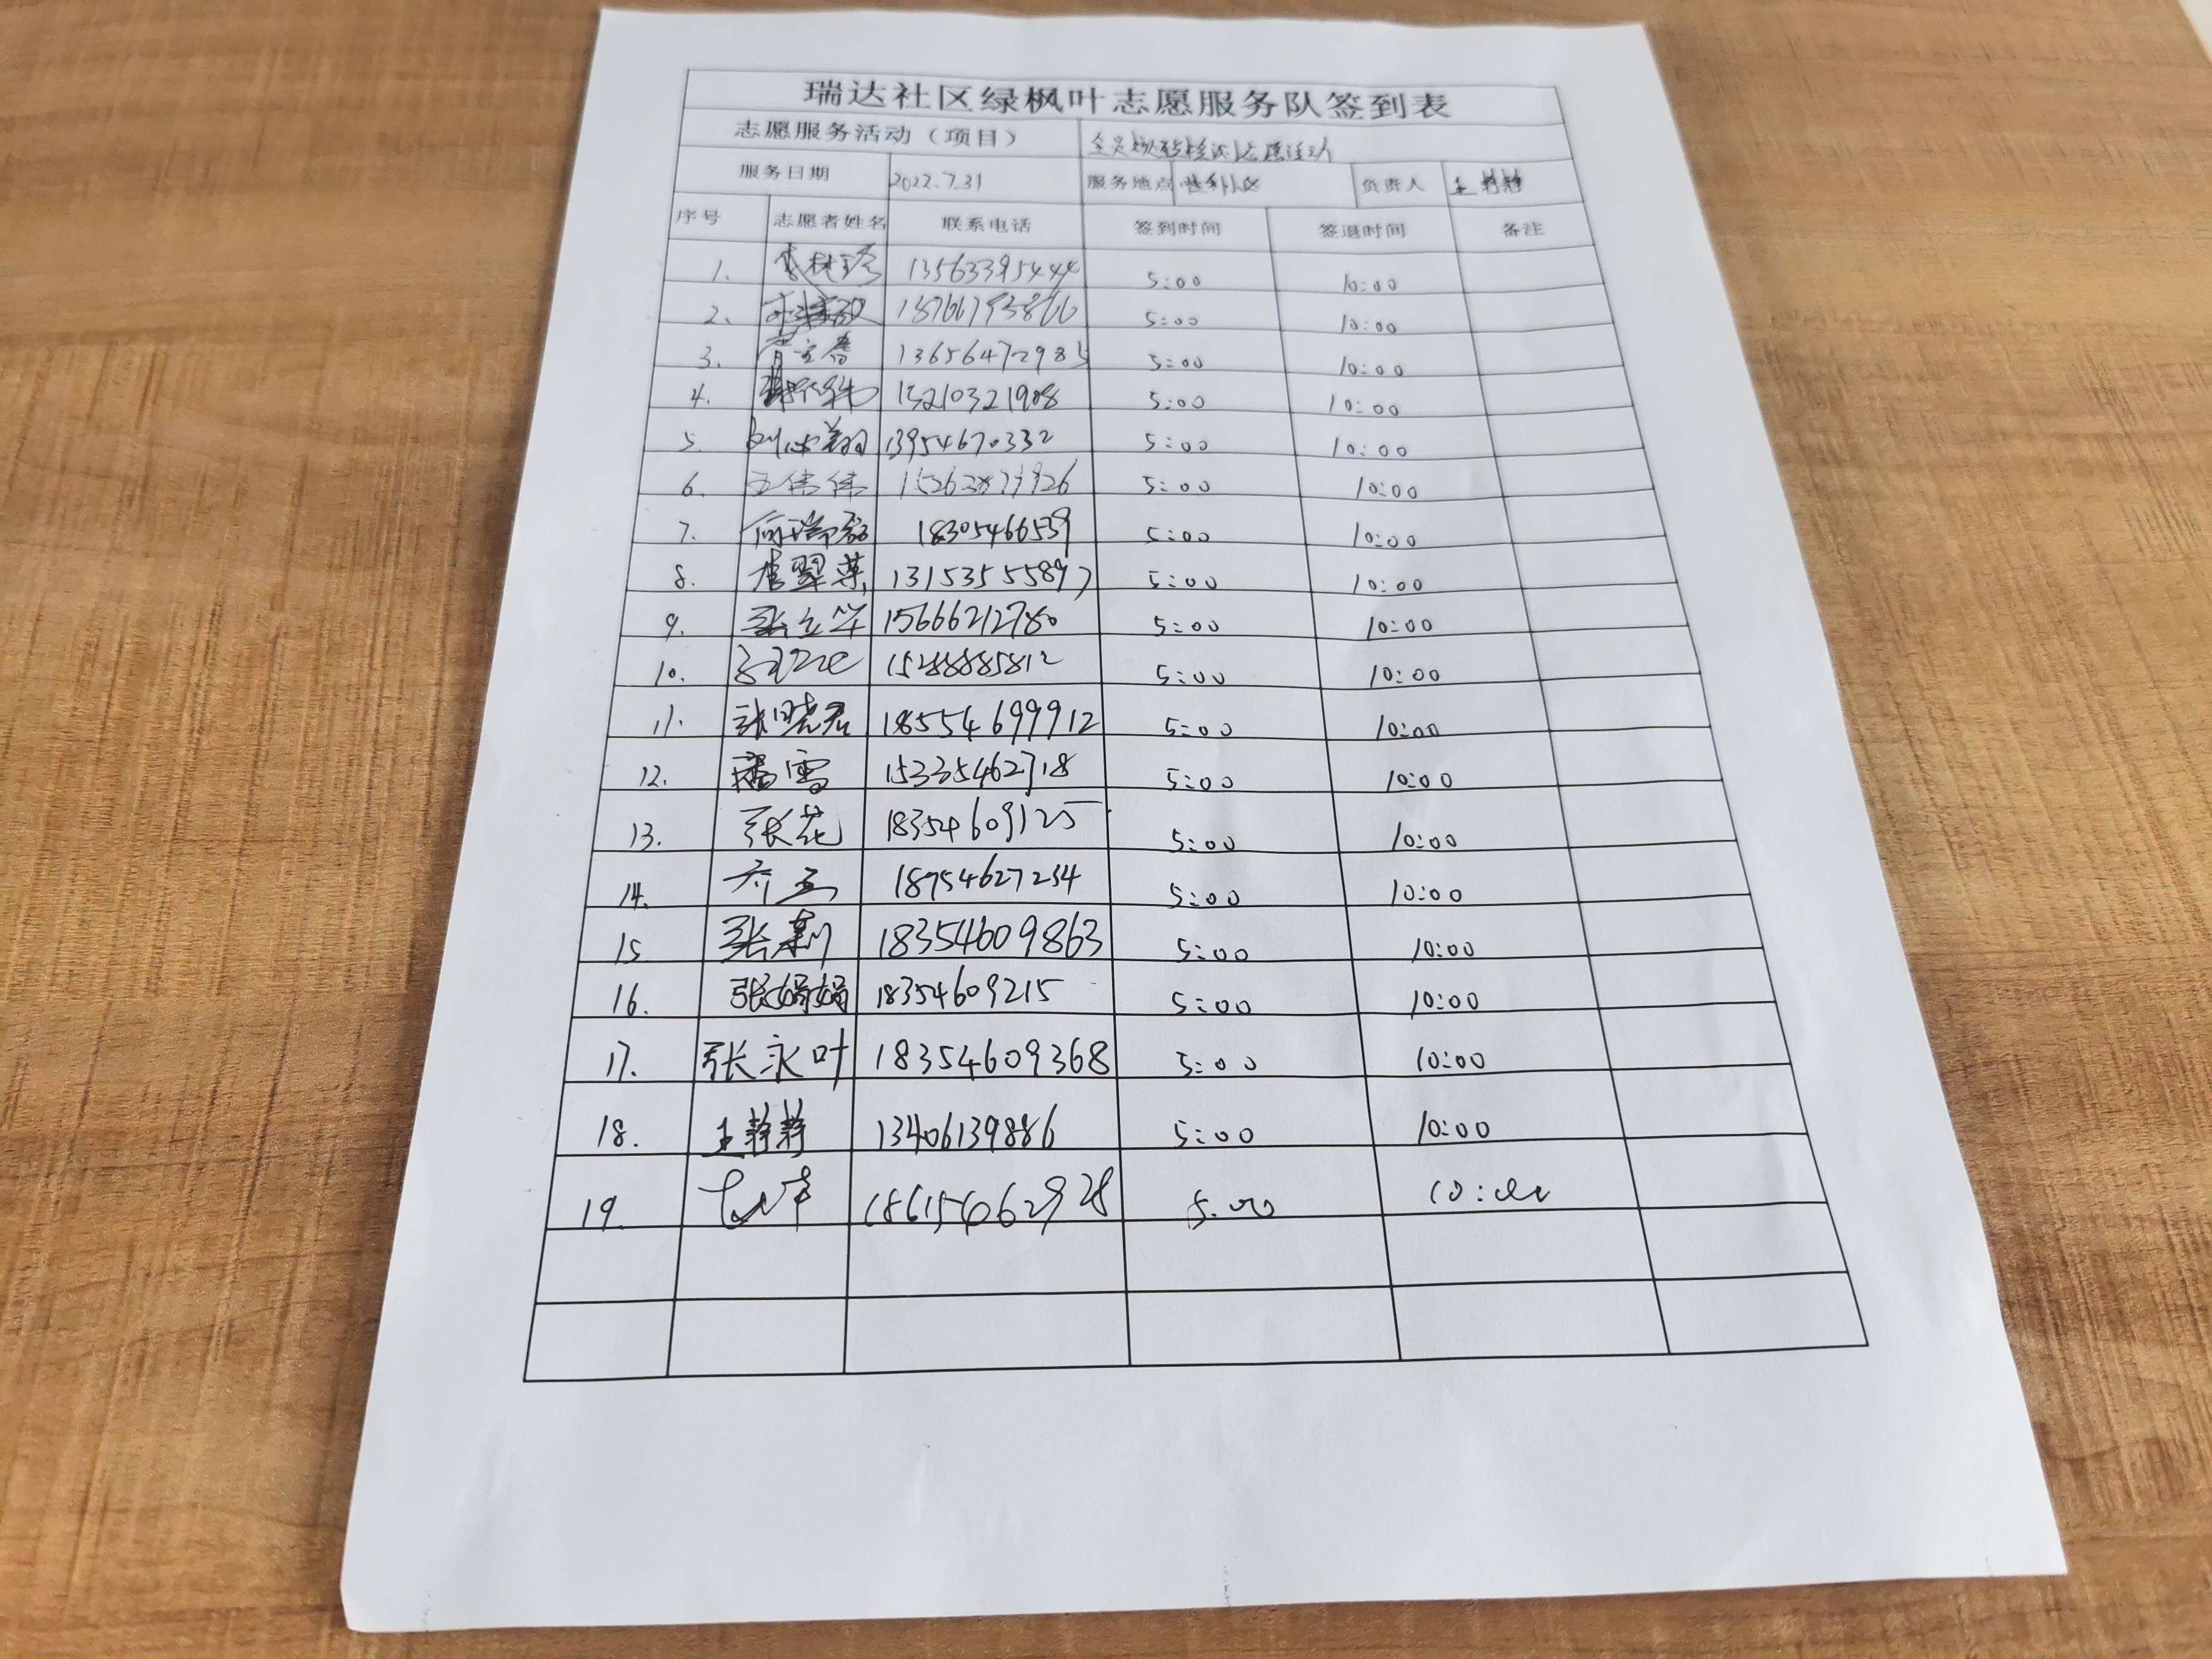 瑞达社区绿枫叶志愿服务队签到表
志愿服务活动（项目） 全员核酸检测志愿活动
服务日期 2022.7.31 服务地点 负责人 王静静
序号 志愿者姓名 联系电话 签到时间 签退时间 备注
1. 13563395444 5:00 10:00
2. 5:00 10:00
3. 13656472985 5:00 10:00
4. 15210321908 5:00 10:00
5. 13954670332 5:00 10:00
6. 王伟伟 5:00 10:00
7. 18305466539 5:00 10:00
8. 13153555897 5:00 10:00
9. 张立华 15666212780 5:00 10:00
10. 15288885812 5:00 10:00
11. 张晓君 18554699912 5:00 10:00
12. 潘雪 15335462718 5:00 10:00
13. 张花 18354609125 5:00 10:00
14. 齐玉 18754627234 5:00 10:00
15 张莉 18354609863 5:00 10:00
16. 张娟娟 18354609215 5:00 10:00
17. 张永叶 18354609368 5:00 10:00
18. 王静静 13406139886 5:00 10:00
19. 18615462928 5:00 10:00